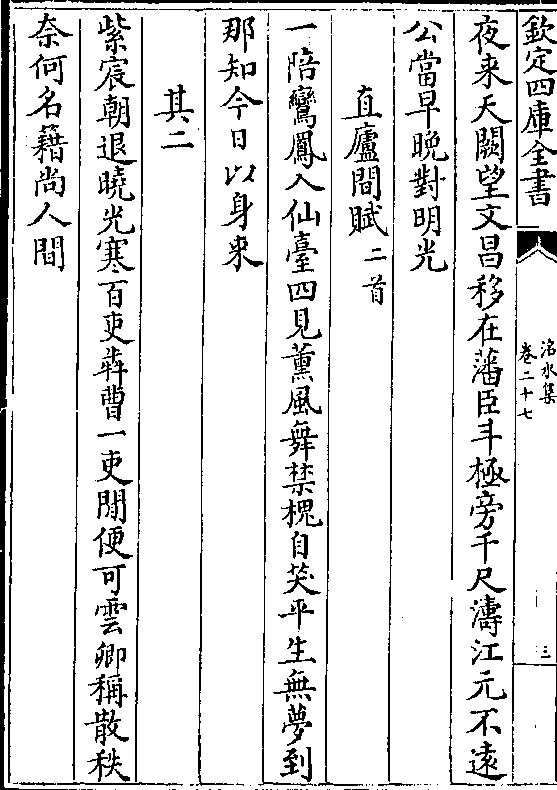 欽定四庫全書
洺水集
卷二十七
三
夜来天闕望文昌移在藩臣斗極旁千尺濤江元不逺
公當早晚對明光
直廬間賦二首
一陪鸞鳳入仙臺四見薫風舞禁槐自笑平生無夢到
那知今日以身来
其二
紫宸朝退曉光寒百吏犇曹一吏閒便可雲卿稱散秩
奈何名籍尚人間